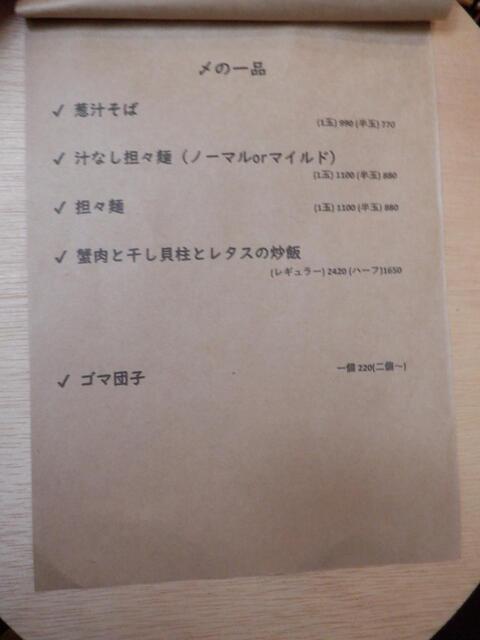 〆の一品
✓ 葱汁そば
(1玉) 990 (半玉) 770
✓ 汁なし担々麺（ノーマルorマイルド）
(1玉) 1100 (半玉) 880
✓ 担々麺
(1玉) 1100 (半玉) 880
✓ 蟹肉と干し貝柱とレタスの炒飯
(レギュラー) 2420 (ハーフ)1650
✓ ゴマ団子
一個 220(二個～)